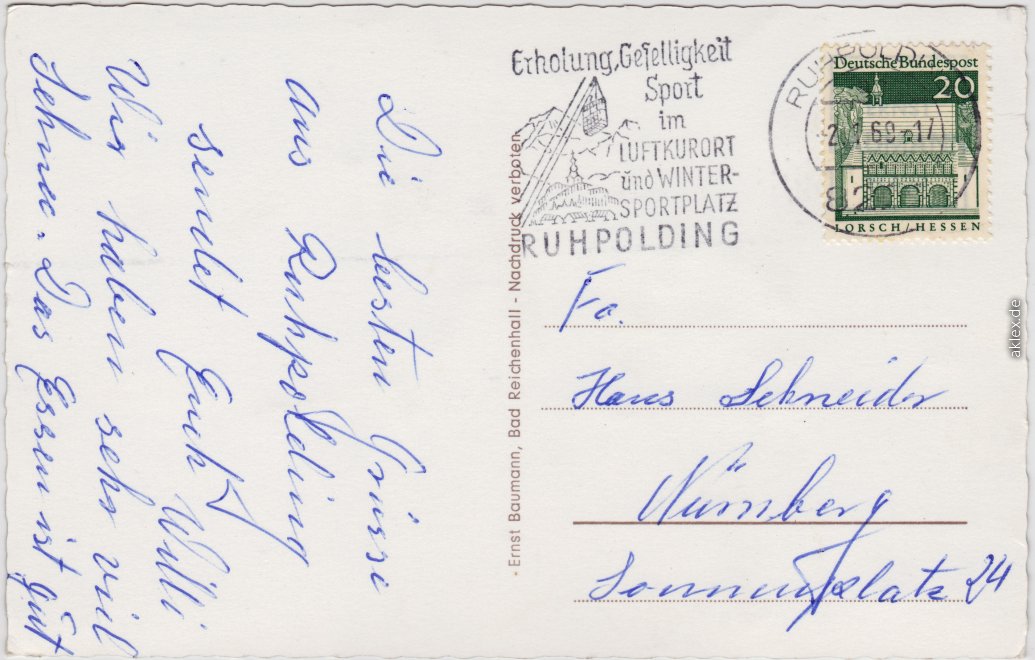 Die besten Grüsse
aus Ruhpolding
sendet Euch Willi
Wir haben sehr viel
Schnee. Das Essen ist gut
- Ernst Baumann, Bad Reichenhall - Nachdruck verboten
Erholung, Geselligkeit
Sport
im
LUFTKURORT
und WINTER-
SPORTPLATZ
RUHPOLDING
RUHPOLD
69-17
Deutsche Bundespost
20
LORSCH/HESSEN
Fa.
Hans Schneider
Nürnberg
Sonnenplatz 24
aklex.de